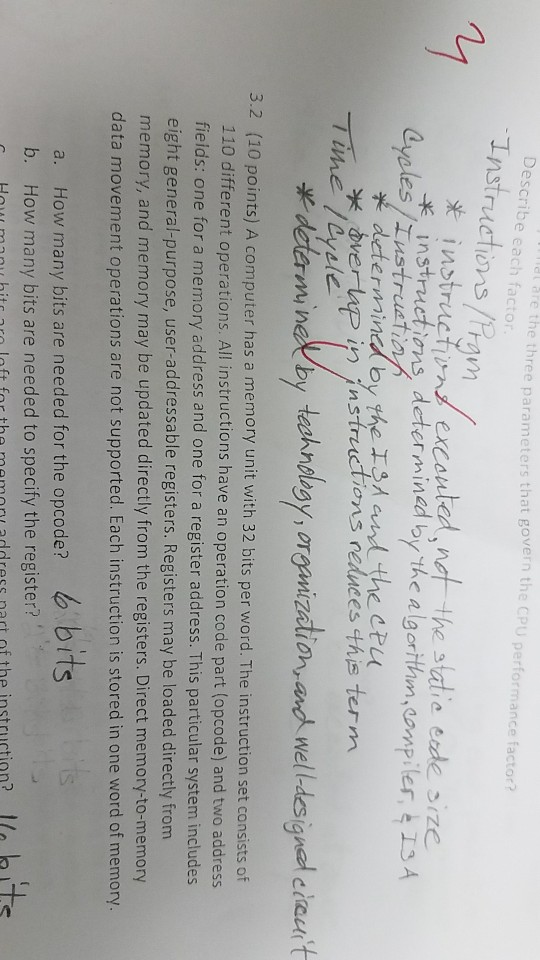 are the three parameters that govern the CPU performance factor?
Describe each factor.
- Instructions/Prgm
* instructions executed, not the static code size
* instructions determined by the algorithm, compiler, & ISA
Cycles/Instruction
* determined by the ISA and the CPU
* overlap in instructions reduces this term
Time/Cycle
* determined by technology, organization, and well-designed circuit
3.2 (10 points) A computer has a memory unit with 32 bits per word. The instruction set consists of
110 different operations. All instructions have an operation code part (opcode) and two address
fields: one for a memory address and one for a register address. This particular system includes
eight general-purpose, user-addressable registers. Registers may be loaded directly from
memory, and memory may be updated directly from the registers. Direct memory-to-memory
data movement operations are not supported. Each instruction is stored in one word of memory.
a. How many bits are needed for the opcode? 6 bits
b. How many bits are needed to specify the register?
How many bits are left for the memory address part of the instruction? 16 bits